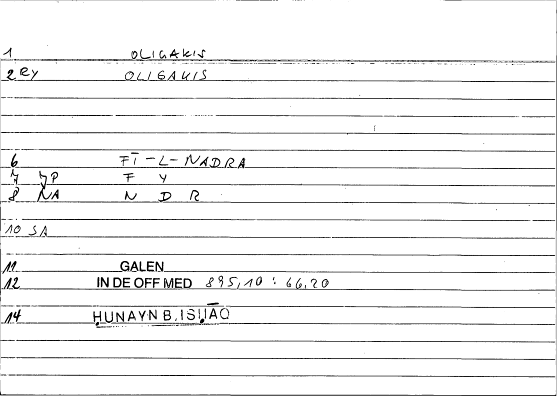 1 OLIGAKIS
2 RY OLIGAKIS
6 FĪ-L-NADRA
7 JP F Y
8 NA N D R
10 SA
11 GALEN
12 IN DE OFF MED 895,10 : 66,20
14 ḤUNAYN B. ISḤĀQ